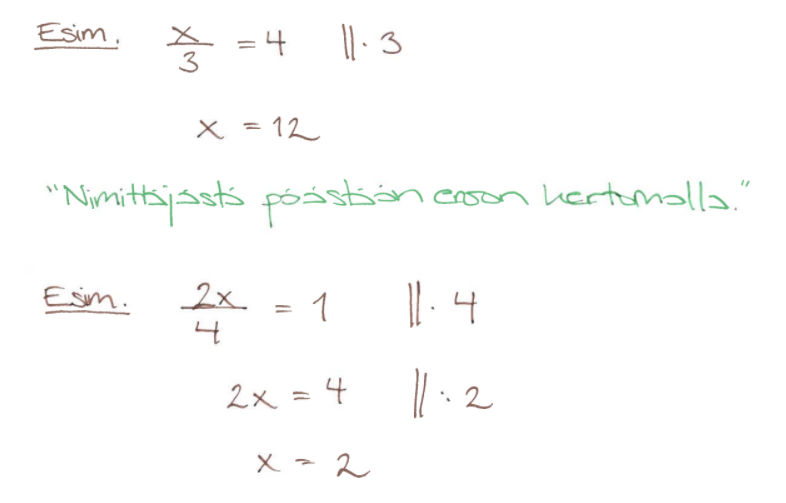 Esim. x/3 = 4 ||· 3
x = 12
"Nimittäjästä päästään eroon kertomalla."
Esim. 2x/4 = 1 ||· 4
2x = 4 ||: 2
x = 2